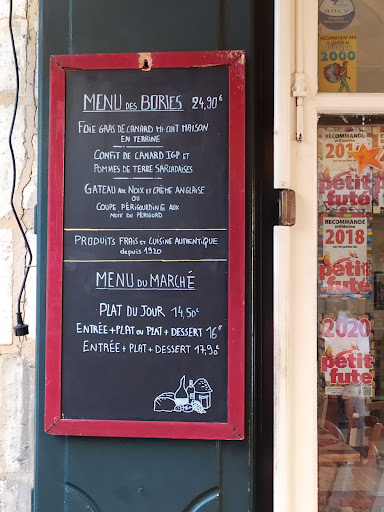 MENU DES BORIES 24,90€
FOIE GRAS DE CANARD MI-CUIT MAISON
EN TERRINE
CONFIT DE CANARD IGP ET
POMMES DE TERRE SARLADAISES
GATEAU AUX NOIX ET CRÈME ANGLAISE
OU
COUPE PÉRIGOURDINE AUX
NOIX DU PÉRIGORD
PRODUITS FRAIS ET CUISINE AUTHENTIQUE
depuis 1920
MENU DU MARCHÉ
PLAT DU JOUR 14,50€
ENTRÉE + PLAT OU PLAT + DESSERT 16€
ENTRÉE + PLAT + DESSERT 17,90€
2000
RECOMMANDÉ
petit
futé
RECOMMANDÉ
2018
petit
futé
2020
petit
futé